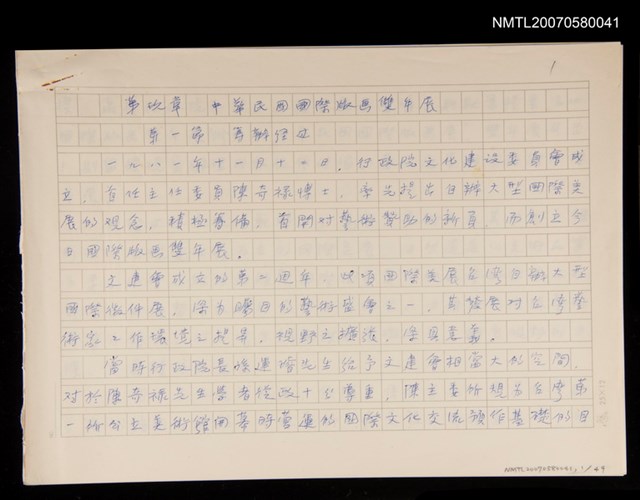 NMTL20070580041
1
第四章 中華民國國際版画雙年展
第一節 籌辦經過
一九八一年十一月十二日，行政院文化建設委員會成
立，首任主任委員陳奇祿博士，率先提出自辦大型國際美
展的观念，積極籌備，首開對藝術贊助的新頁，而創立今
日國際版画雙年展。
文建會成立的第二週年，此項國際美展在台灣自辦大型
國際徵件展，係為矚目的藝術盛會之一，其發展对台灣藝
術家工作環境之提昇，視野之擴張，俱具意義。
當時行政院長孫運璿先生給予文建會相當大的空間，
对於陳奇祿先生學者從政十分尊重，陳主委所想為台灣第
一所公立美術館開幕時營運的國際文化交流預作基礎的目
NMTL20070580041, 1/49